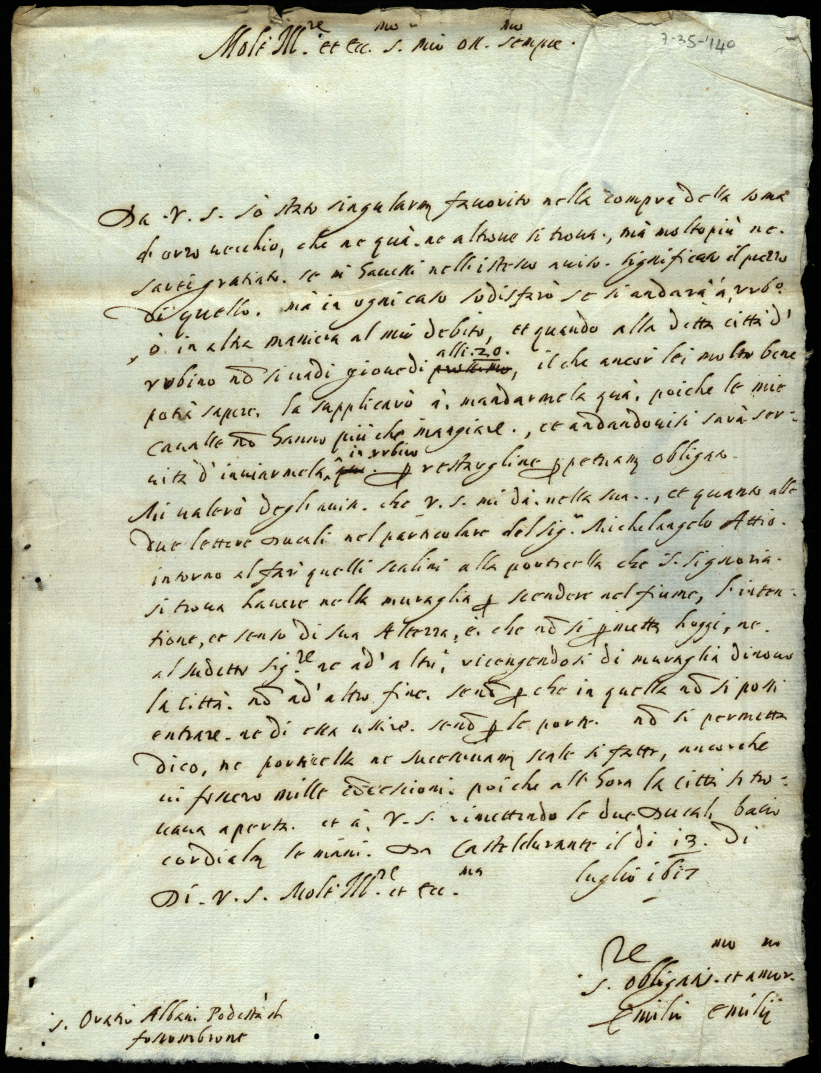 7-35-140
Molt Ill.re et ecc.mo s. mio oss.mo sempre.
Da V. S. sò stato singularm favorito nella compra della soma
d'orzo uecchio, che ne quà ne altroue si troua, mà molto più ne
sarei gratiato se mi hauessi nell istesso auiso significato il prezzo
di quello. mà in ogni caso sodisfarò se si andarà à Urbo
ò in altra maniera al mio debito, et quando alla detta città d'
Vrbino nō si uadi giouedi alli 20. il che ancor lei molto bene
potrà sapere, la supplicarò à mandarmela quà, poiche le mie
caualle nō hanno più che mangiare, et andandouisi sarà ser-
uita d'inuiarmela in Urbino. restargline ppetuam obligato.
Mi ualerò degli auisi che V. S. mi dà nella sua, et quanto alle
due lettere Ducali nel particolare del sig.r Michelangelo Attio
intorno al far quelli scalini alla porticella che S. Signoria
si troua hauere nella muraglia p scendere nel fiume, l'inten-
tione, et senso di sua Altezza, è che nō si pmetta hoggi, ne
al sudetto sig.re ne ad' altri, ricengendosi di muraglia di nouo
la città nō ad' altro fine, senō p che in quella nō si possi
entrare ne di essa uscire senō p le porte. nō si permetta
dico, ne porticella ne scale si fatte, ancorche
ui fussero mille cōcessioni poiche all' hora la città si tro-
uaua aperta. et à V. S. rimettendo le due Ducali bacio
cordialm le mani. Da Casteldurante il di 13. di
luglio 1617
Di V. S. Molt Ill.re et ecc.ma
S.re obligatis.mo et amor.mo
Emilio Emilij
s. Oratio Albani Podestà di
fossombrone